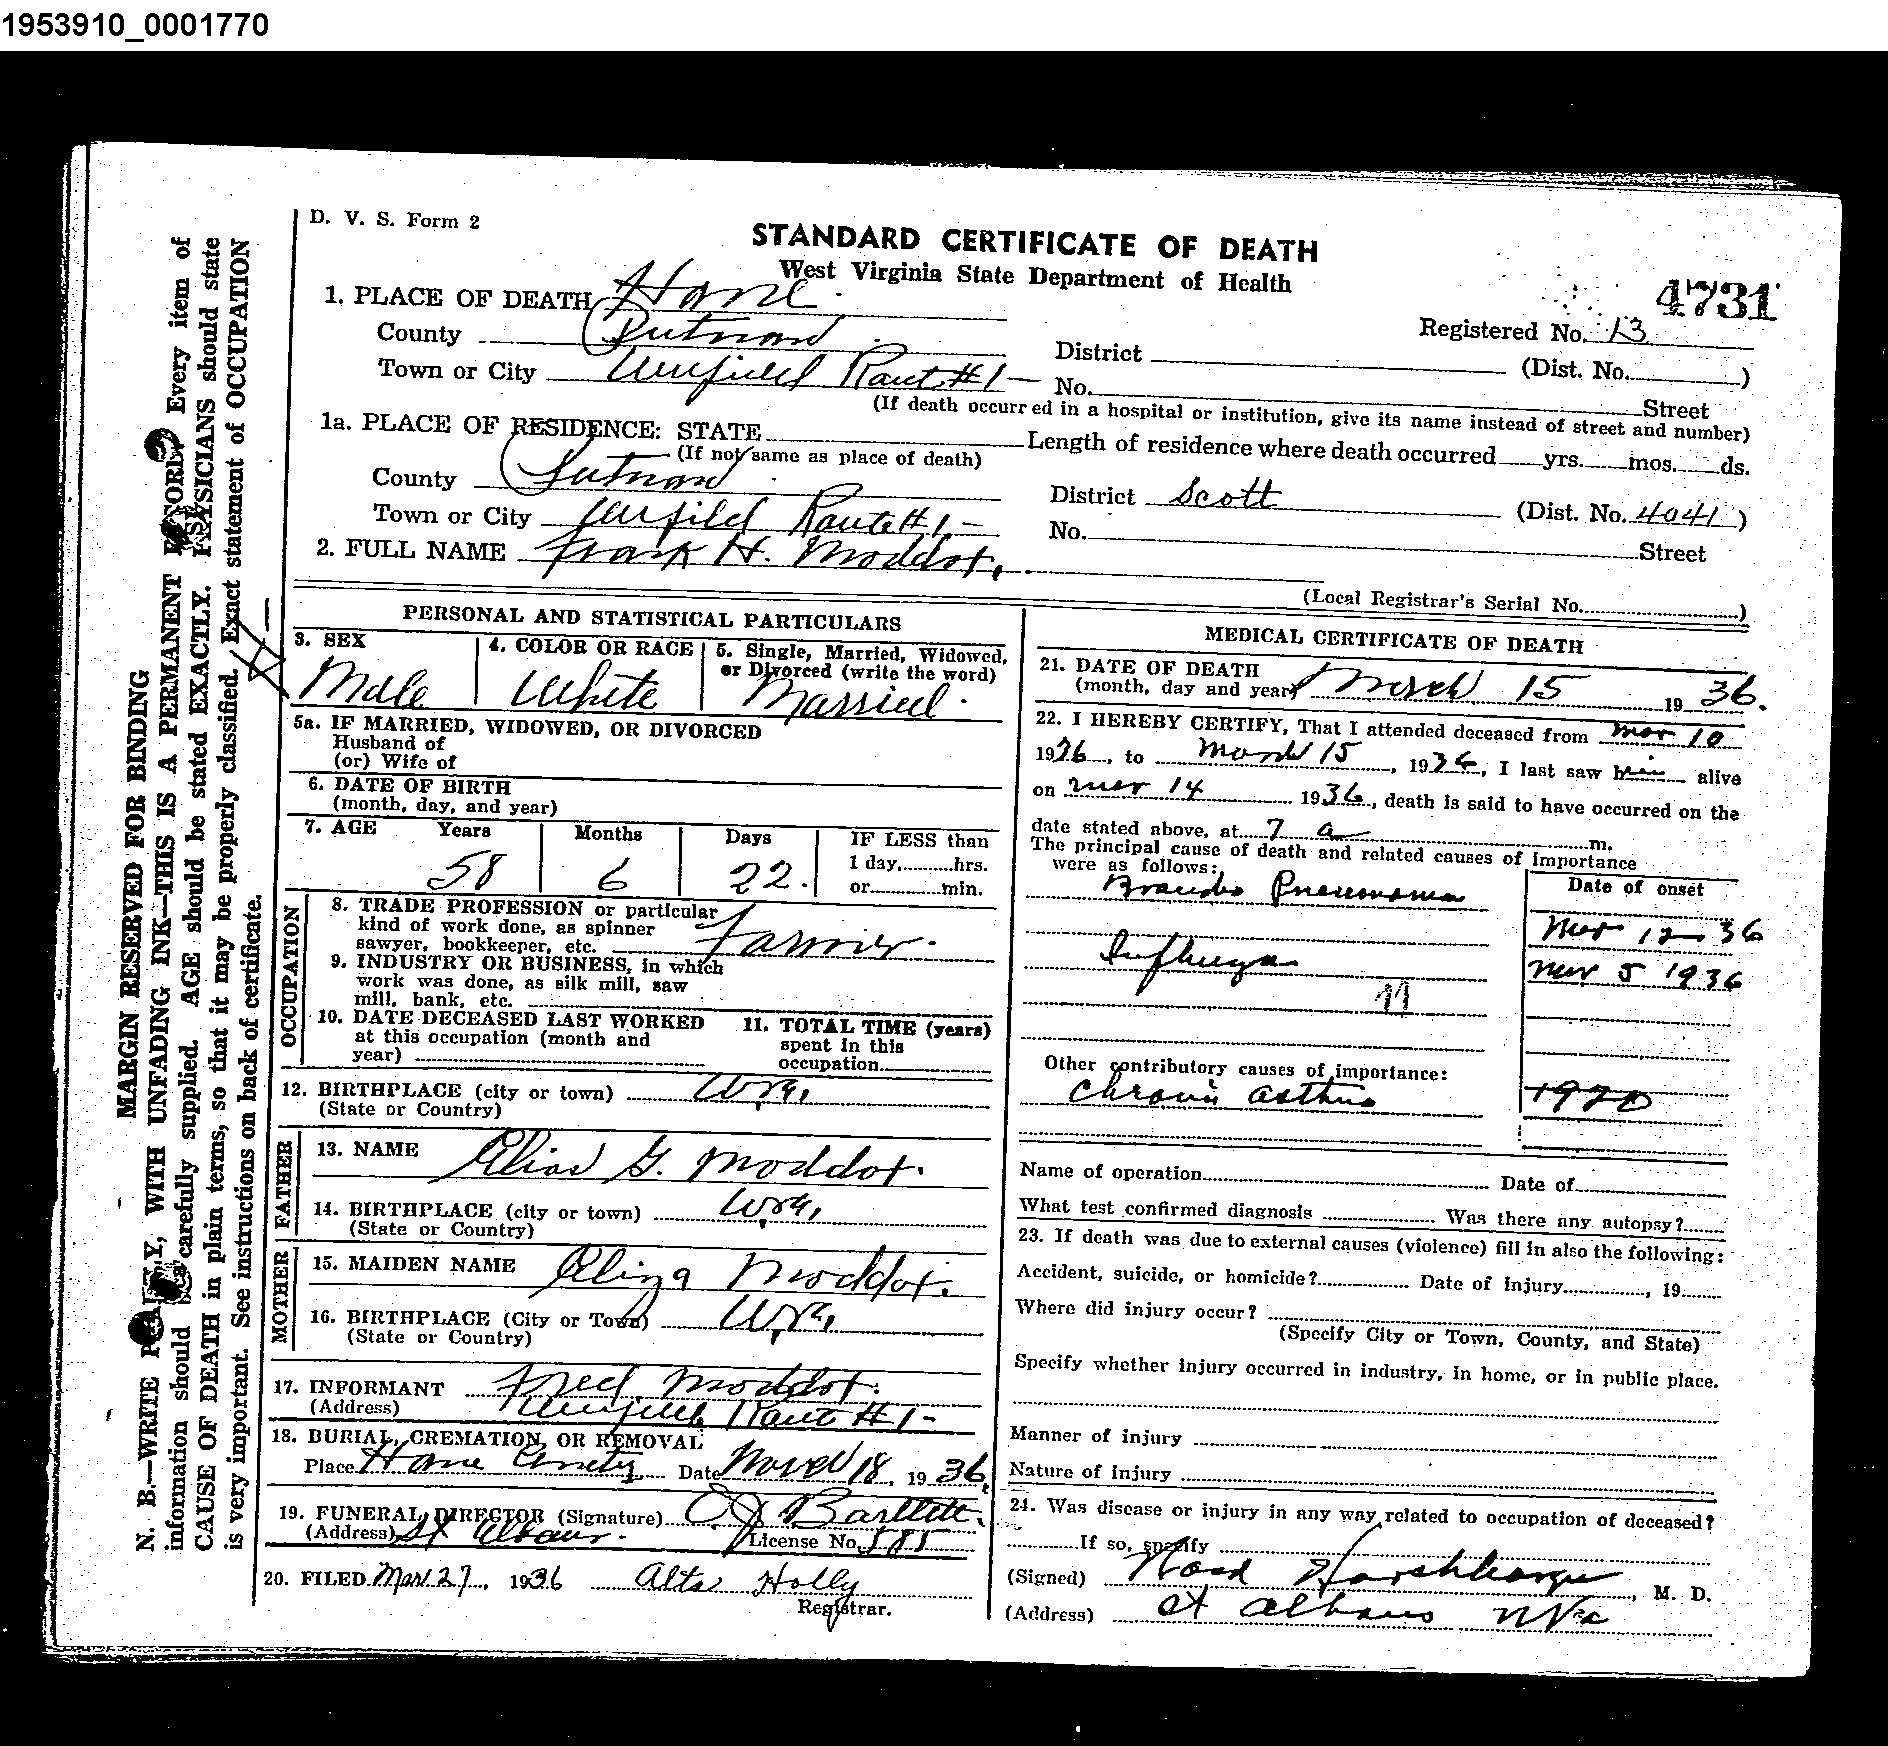 1953910_0001770
D. V. S. Form 2
STANDARD CERTIFICATE OF DEATH
West Virginia State Department of Health
4731
1. PLACE OF DEATH Home
Registered No. 13
County Putnam
District (Dist. No. )
Town or City Winfield Route #1—
No. Street
(If death occurred in a hospital or institution, give its name instead of street and number)
1a. PLACE OF RESIDENCE: STATE
Length of residence where death occurred yrs. mos. ds.
(If not same as place of death)
County Putnam
District Scott (Dist. No. 4041)
Town or City Winfield Route #1—
No. Street
2. FULL NAME Frank H. Moddot.
(Local Registrar's Serial No. )
PERSONAL AND STATISTICAL PARTICULARS
3. SEX
Male
4. COLOR OR RACE
White
5. Single, Married, Widowed,
or Divorced (write the word)
Married.
5a. IF MARRIED, WIDOWED, OR DIVORCED
Husband of
(or) Wife of
6. DATE OF BIRTH
(month, day, and year)
7. AGE Years Months Days IF LESS than
1 day, hrs.
58 6 22. or min.
OCCUPATION
8. TRADE PROFESSION or particular
kind of work done, as spinner
sawyer, bookkeeper, etc. Farmer.
9. INDUSTRY OR BUSINESS, in which
work was done, as silk mill, saw
mill, bank, etc.
10. DATE DECEASED LAST WORKED
at this occupation (month and
year)
11. TOTAL TIME (years)
spent in this
occupation
12. BIRTHPLACE (city or town) W.Va.
(State or Country)
FATHER
13. NAME Elias G. Moddot.
14. BIRTHPLACE (city or town) W.Va.
(State or Country)
MOTHER
15. MAIDEN NAME Eliza Moddot.
16. BIRTHPLACE (City or Town) W.Va.
(State or Country)
17. INFORMANT Fred Moddot.
(Address) Winfield Route #1-
18. BURIAL, CREMATION, OR REMOVAL
Place Home Date March 18, 1936.
19. FUNERAL DIRECTOR (Signature) Bartlett.
(Address) St Albans. License No. 585
20. FILED Mar 27, 1936 Alta Holly
Registrar.
MEDICAL CERTIFICATE OF DEATH
21. DATE OF DEATH
(month, day and year) March 15 1936.
22. I HEREBY CERTIFY, That I attended deceased from Mar 10
1936, to March 15, 1936, I last saw him alive
on Mar 14 1936, death is said to have occurred on the
date stated above, at 7 a m.
The principal cause of death and related causes of importance
were as follows:
Date of onset
Broncho Pneumonia
Mar 12 36
Influenza
Mar 5 1936
11
Other contributory causes of importance:
Chronic asthma 1920
Name of operation Date of
What test confirmed diagnosis Was there any autopsy?
23. If death was due to external causes (violence) fill in also the following:
Accident, suicide, or homicide? Date of injury , 19
Where did injury occur?
(Specify City or Town, County, and State)
Specify whether injury occurred in industry, in home, or in public place.
Manner of injury
Nature of injury
24. Was disease or injury in any way related to occupation of deceased?
If so, specify
(Signed) Harshbarger, M. D.
(Address) St Albans W Va
MARGIN RESERVED FOR BINDING
N. B.—WRITE PLAINLY, WITH UNFADING INK—THIS IS A PERMANENT RECORD. Every item of
information should be carefully supplied. AGE should be stated EXACTLY. PHYSICIANS should state
CAUSE OF DEATH in plain terms, so that it may be properly classified. Exact statement of OCCUPATION
is very important. See instructions on back of certificate.